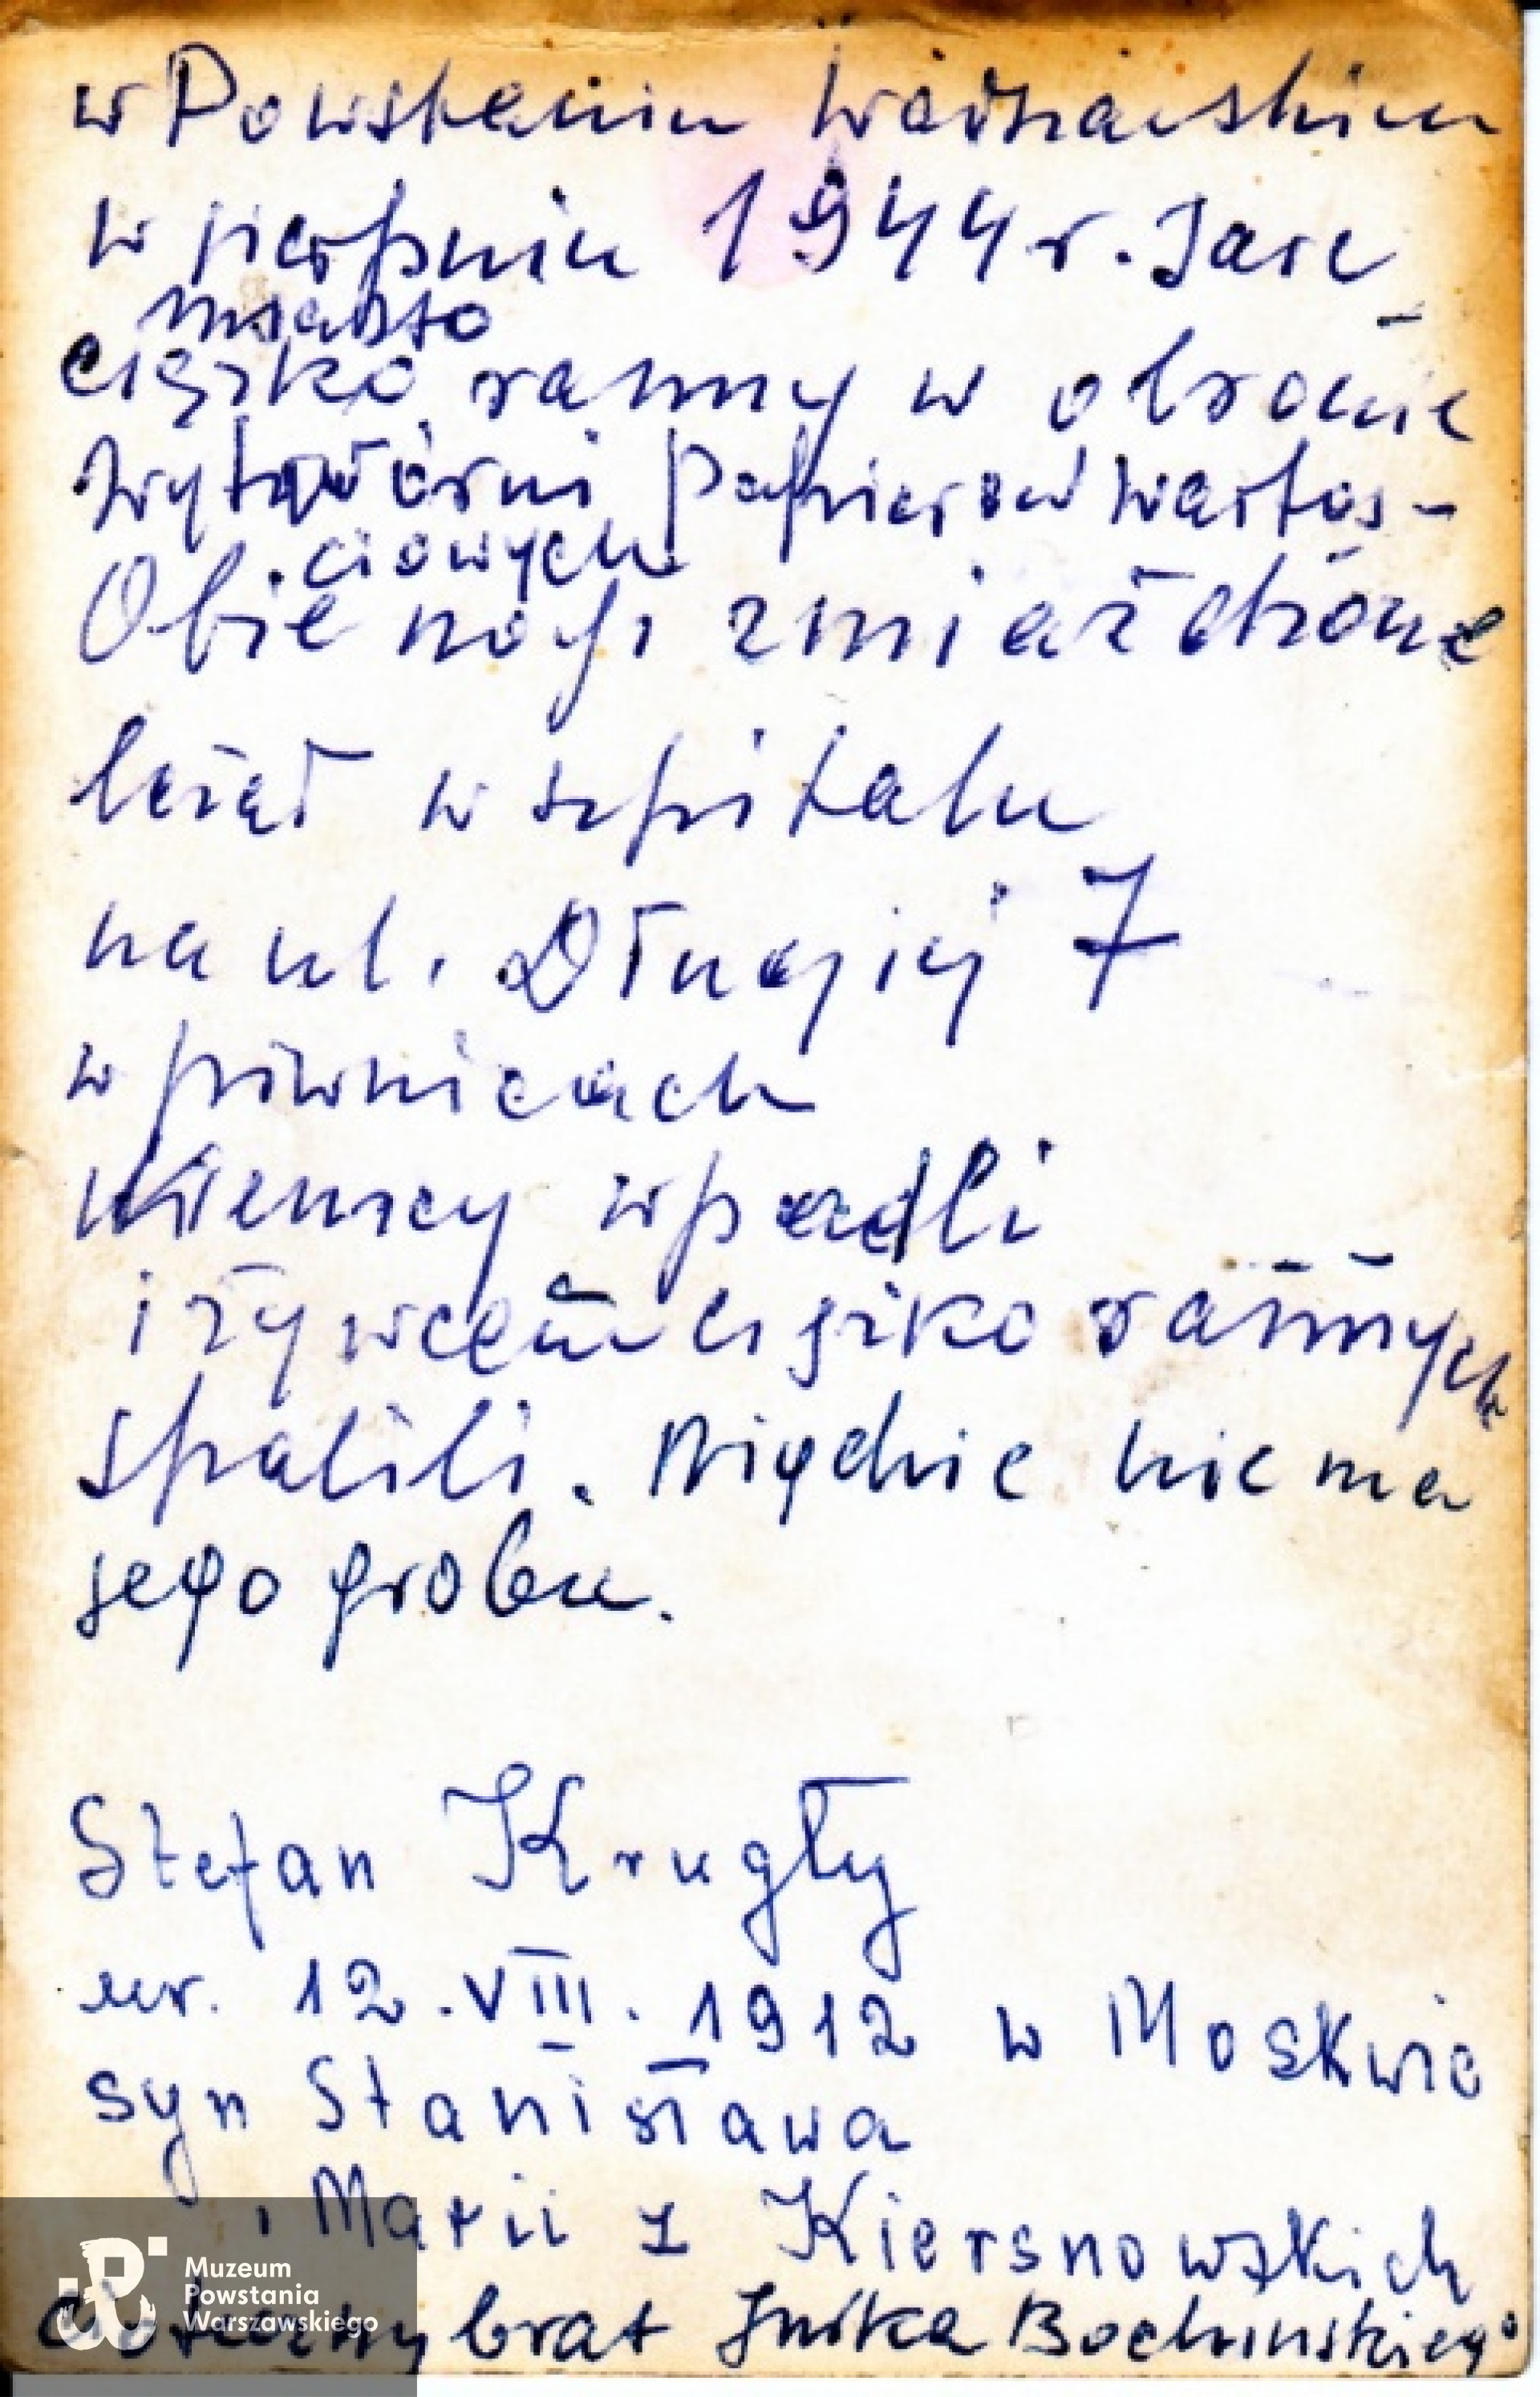 w Powstaniu Warszawskim
w sierpniu 1944 r. Stare
miasto
ciężko ranny w obronie
Wytwórni Papierów Wartoś-
ciowych.
Obie nogi zmiażdżone
leżał w szpitalu
na ul. Długiej 7
w piwnicach
Niemcy wpadli
i żywcem ciężko rannych
spalili. Nigdzie nie ma
jego grobu.
Stefan Krugły
ur. 12.VIII.1912 w Moskwie
syn Stanisława
i Marii z Kiersnowskich
Cioteczny brat Julka Bochińskiego
Muzeum
Powstania
Warszawskiego